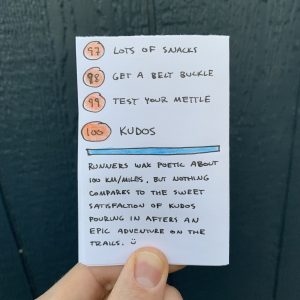 97 LOTS OF SNACKS
98 GET A BELT BUCKLE
99 TEST YOUR METTLE
100 KUDOS
RUNNERS WAX POETIC ABOUT
100 KM/MILES, BUT NOTHING
COMPARES TO THE SWEET
SATISFACTION OF KUDOS
POURING IN AFTERS AN
EPIC ADVENTURE ON THE
TRAILS.